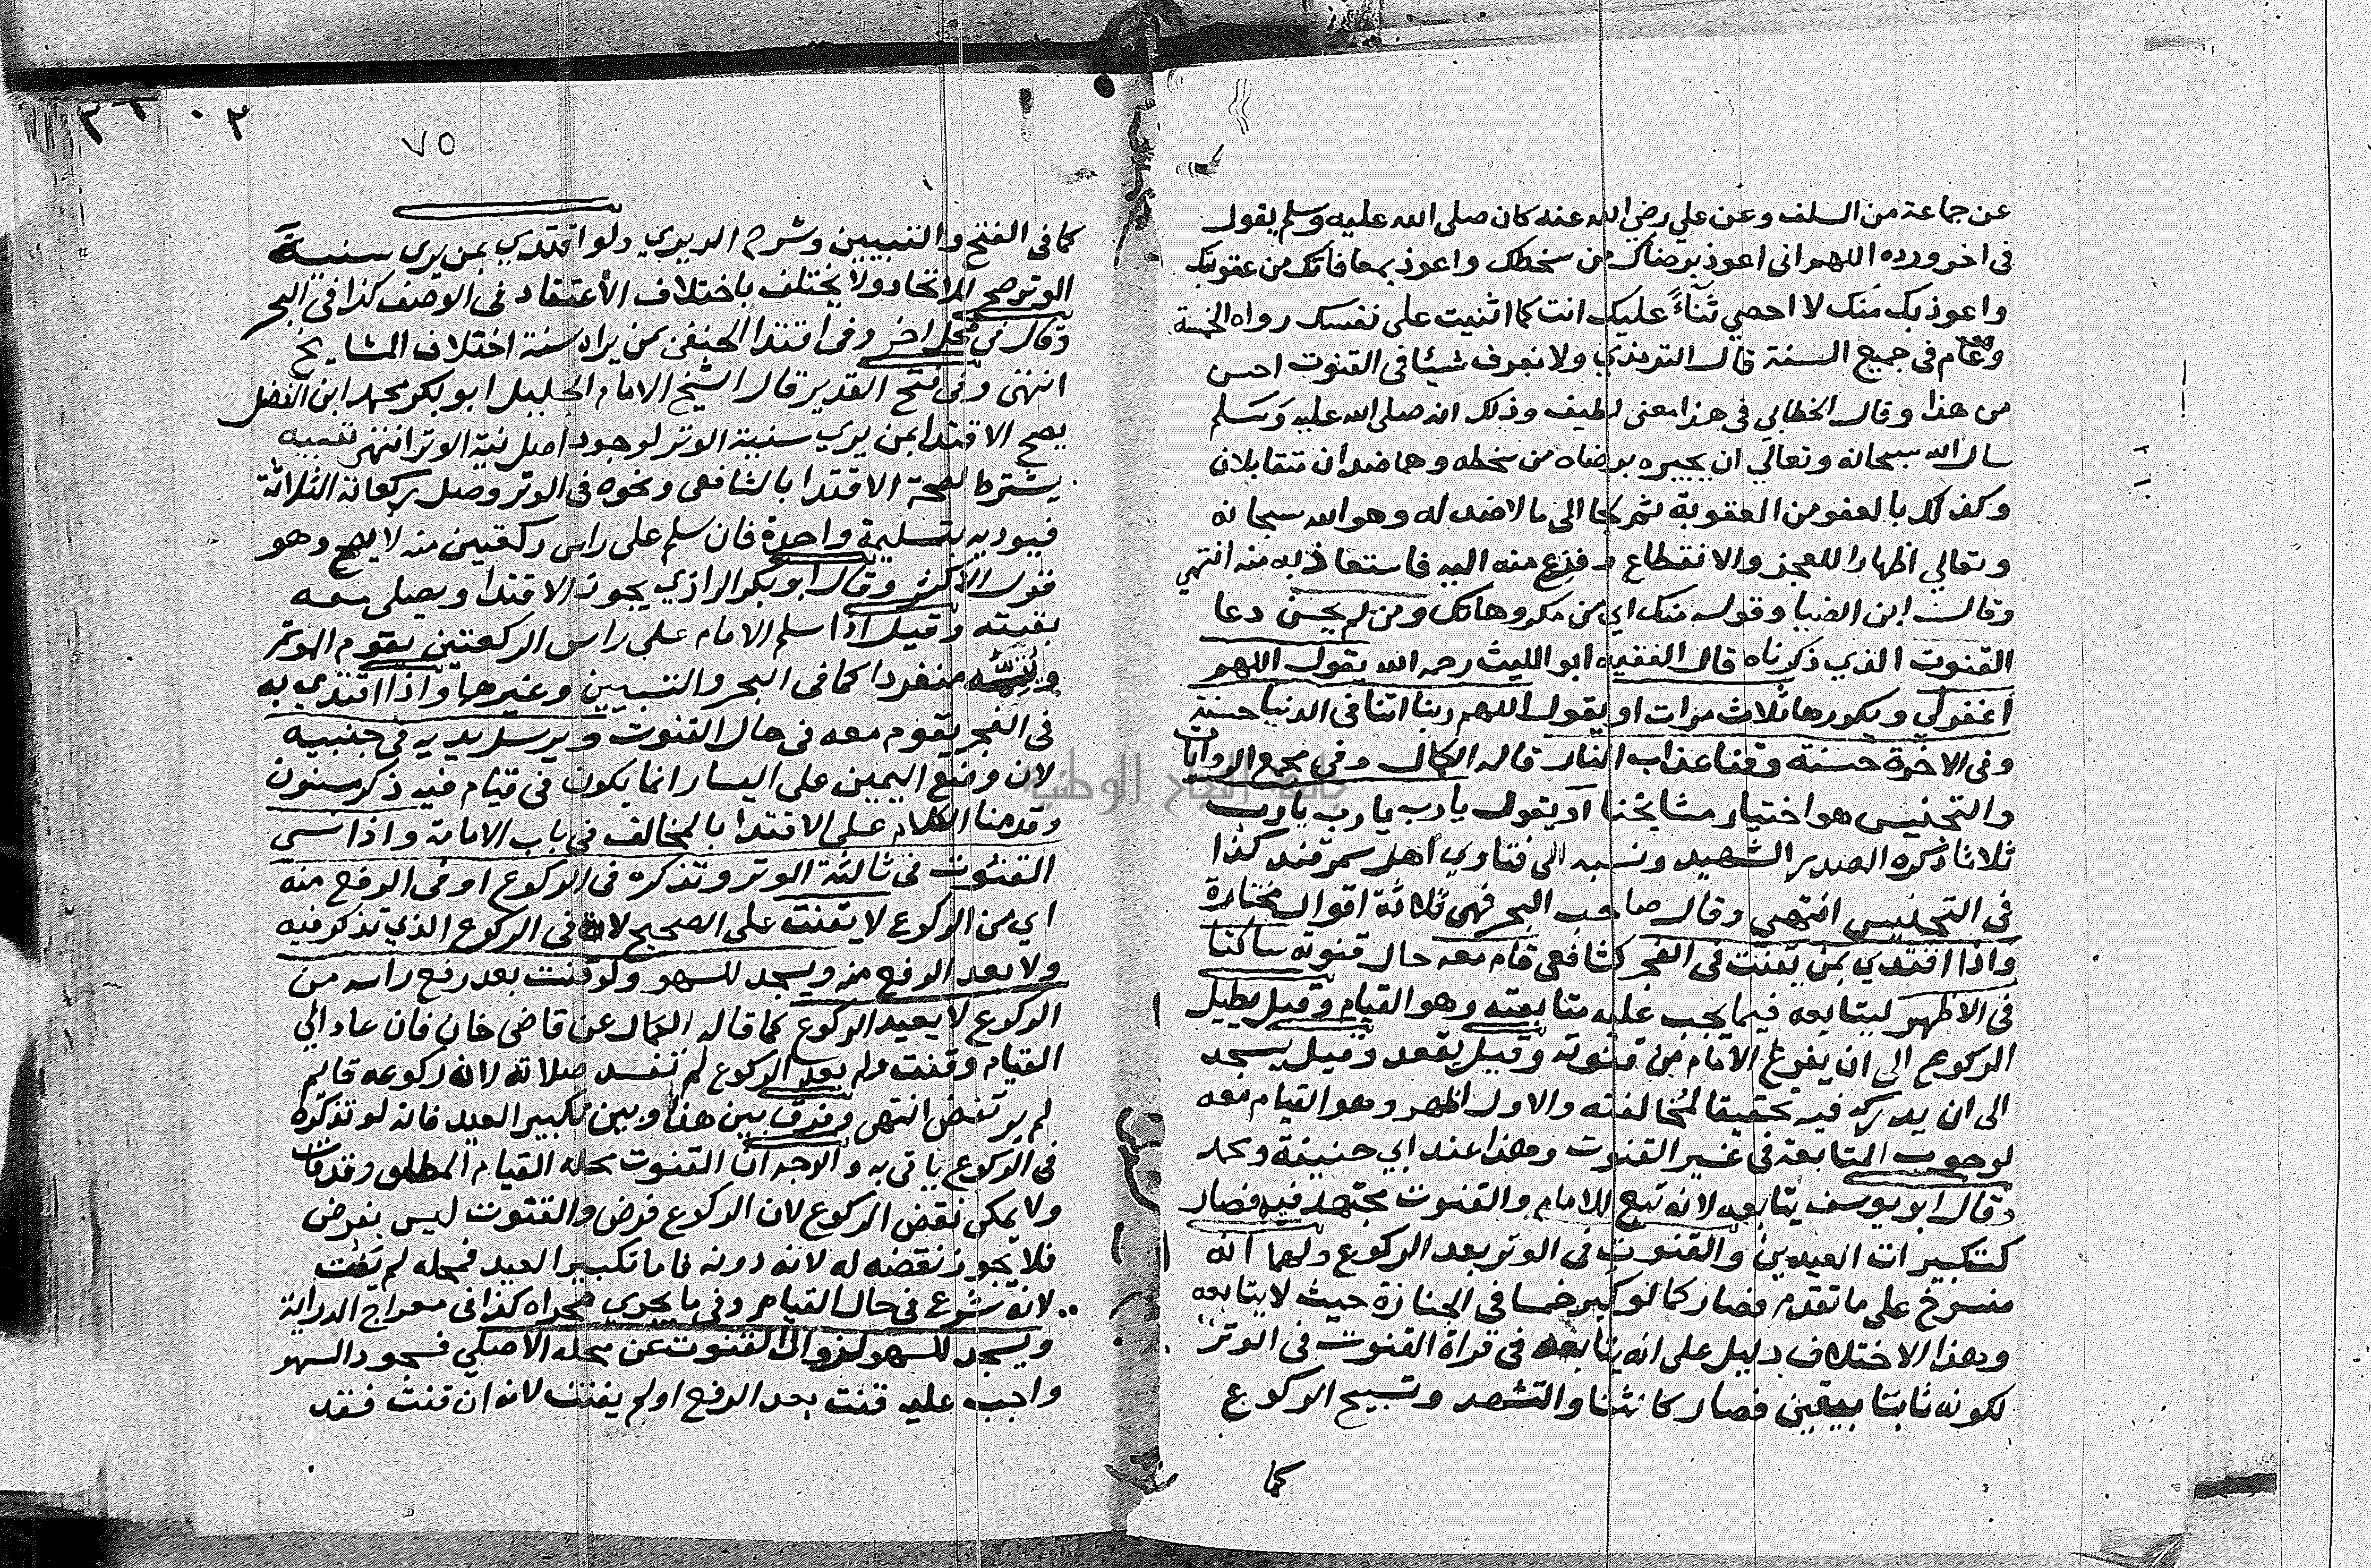 عن جماعة من السلف وعن علي رضي الله عنه كان صلى الله عليه وسلم يقول
في اخر ورده اللهم اني اعوذ برضاك من سخطك واعوذ بمعافاتك من عقوبتك
واعوذ بك منك لا احصي ثناءً عليك انت كما اثنيت على نفسك رواه الخمسة
وعام في جميع السنة قال الترمذي ولا نعرف شيئا في القنوت احسن
من هذا وقال الخطابي في هذا معنى لطيف وذلك انه صلى الله عليه وسلم
سال الله سبحانه وتعالي ان يجيره برضاه من سخطه وهما ضدان متقابلان
وكذلك بالعفو من العقوبة ثم لجا الى ما لا ضد له وهو الله سبحانه
وتعالي اظهارا للعجز والانقطاع وفزع منه اليه فاستعاذ به منه انتهي
وقال ابن الضيا وقوله منك اي من مكروهاتك ومن لم يحسن دعا
القنوت الذي ذكرناه قال الفقيه ابو الليث رحمه الله يقول اللهم
اغفر لي ويكررها ثلاث مرات او يقول اللهم ربنا اتنا في الدنيا حسنة
وفي الاخرة حسنة وقنا عذاب النار قاله الكمال وفي مجمع الروايات
والتجنيس هو اختيار مشايخنا او يقول يا رب يا رب يا رب
ثلاثا ذكره الصدر الشهيد ونسبه الى فتاوي اهل سمرقند كذا
في التجنيس انتهى وقال صاحب البحر فهي ثلاثة اقوال مختارة
واذا اقتدي بمن يقنت في الفجر كشافعي قام معه حال قنوته ساكتا
في الاظهر ليتابعه فيما يجب عليه متابعته وهو القيام وقيل يطيل
الركوع الى ان يفرغ الامام من قنوته وقيل يقعد وقيل يسجد
الى ان يدركه فيه تحقيقا لمخالفته والاول اظهر وهو القيام معه
لوجوب المتابعة في غير القنوت وهذا عند ابي حنيفة ومحمد
وقال ابو يوسف يتابعه لانه تبع للامام والقنوت مجتهد فيه فصار
كتكبيرات العيدين والقنوت في الوتر بعد الركوع ولهما انه
منسوخ على ما تقدم فصار كما لو كبر خمسا في الجنازة حيث لا يتابعه
وهذا الاختلاف دليل على انه يتابعه في قراة القنوت في الوتر
لكونه ثابتا بيقين فصار كالثنا والتشهد وتسبيح الركوع
كما
٧٥
كما في الفتح والتبيين وشرح الديري ولو اقتدي بمن يرى سنية
الوتر صح للاتحاد ولا يختلف باختلاف الاعتقاد في الوصف كذا في البحر
وقال في محل اخر وفي اقتدا الحنفي بمن يراه سنة اختلاف المشايخ
انتهى وفي فتح القدير قال الشيخ الامام الجليل ابو بكر محمد ابن الفضل
يصح الاقتدا بمن يري سنية الوتر لوجود اصل نية الوتر انتهى تنبيه
يشترط لصحة الاقتدا بالشافعي ونحوه في الوتر وصل ركعاته الثلاثة
فيوديه بتسليمة واحدة فان سلم على راس ركعتين منه لا يصح وهو
قول الاكثر وقال ابو بكر الرازي يجوز الاقتدا ويصلي معه
بقيته وقيل اذا سلم الامام على راس الركعتين يقوم الموتر
ويتمه منفردا كما في البحر والتبيين وغيرها واذا اقتدي به
في الفجر يقوم معه في حال القنوت ويرسل يديه في جنبيه
لان وضع اليمين على اليسار انما يكون في قيام فيه ذكر مسنون
وقدمنا الكلام على الاقتدا بالمخالف في باب الامامة واذا نسي
القنوت في ثالثة الوتر وتذكره في الركوع او في الرفع منه
اي من الركوع لا يقنت على الصحيح لا في الركوع الذي تذكر فيه
ولا بعد الرفع منه ويسجد للسهو ولو قنت بعد رفع راسه من
الركوع لا يعيد الركوع كما قاله الكمال عن قاضي خان فان عاد الي
القيام وقنت ولم يعد الركوع لم تفسد صلاته لان ركوعه قايم
لم يرتفض انتهى وفرق بين هذا وبين تكبير العيد فانه لو تذكره
في الركوع ياتي به والوجه ان القنوت محله القيام المطلق وقد فات
ولا يمكن نقض الركوع لان الركوع فرض والقنوت ليس بفرض
فلا يجوز نقضه له لانه دونه فاما تكبير العيد فمحله لم يفت
لانه شرع في حال القيام وفي ما يجري مجراه كذا في معراج الدراية
ويسجد للسهو لزوال القنوت عن محله الاصلي فسجود السهو
واجب عليه قنت بعد الرفع او لم يقنت لانه ان قنت فقد
جامعة النجاح الوطنية